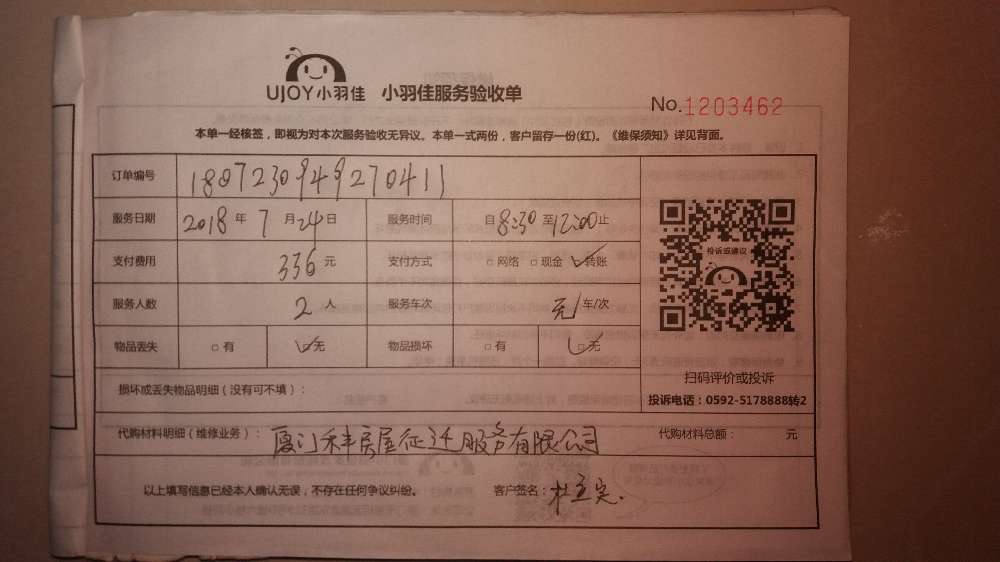 UJOY小羽佳 小羽佳服务验收单
No.1203462
本单一经核签，即视为对本次服务验收无异议。本单一式两份，客户留存一份(红)。《维保须知》详见背面。
订单编号 1807230949270411
服务日期 2018年7月24日 服务时间 自8:30至12:00止
支付费用 336元 支付方式 □网络 □现金 ☑转账
服务人数 2人 服务车次 无/车/次
物品丢失 □有 ☑无 物品损坏 □有 ☑无
投诉或建议
扫码评价或投诉
投诉电话：0592-5178888转2
损坏或丢失物品明细（没有可不填）：
代购材料明细（维修业务）：厦门禾丰房屋征迁服务有限公司 代购材料总额： 元
以上填写信息已经本人确认无误，不存在任何争议纠纷。 客户签名：杜